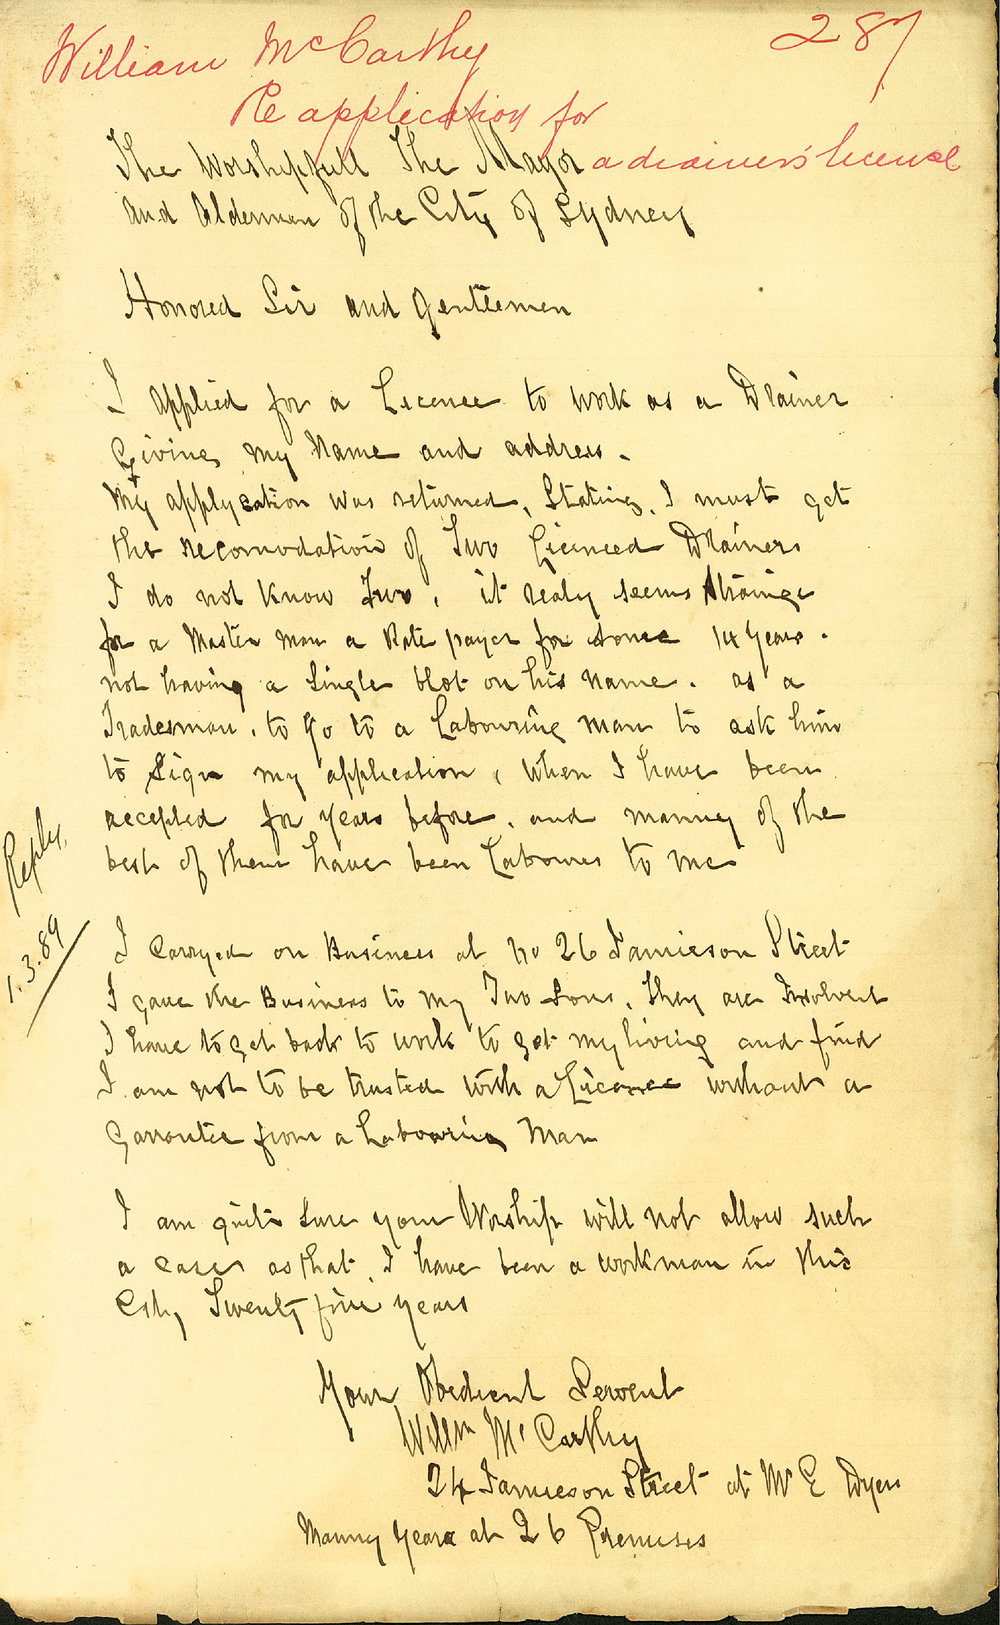 287
William McCarthy
Re application for
a drainer's license
The Worshipfull The Mayor
and Aldermen of the City of Sydney
Honored Sir and Gentlemen
I applied for a Licence to work as a Drainer
Giving my Name and address.
My applycation was returned, Stating, I must get
the recomodation of Two Licenced Drainers
I do not know Two, it realy seems strainge
for a Master man a Rate payer for some 14 years.
not having a single blot on his name. as a
Tradesman, to go to a Labouring man to ask him
to sign my application, when I have been
accepted for years before, and manney of the
best of them have been Labourers to me
Reply
1.3.89
I carryed on Business at No 26 Jamieson Street
I gave the Business to my Two Sons, they are Insolvent
I have to get back to work to get my living and find
I am not to be trusted with a Licence without a
Garrontee from a Labouring Man
I am quite sure your Worship will not allow such
a case as that, I have been a workman in this
City Twenty five years
Your Obedient Servent
Willm McCarthy
24 Jamieson Street at Mr E Dyers
Manny years at 26 Premises